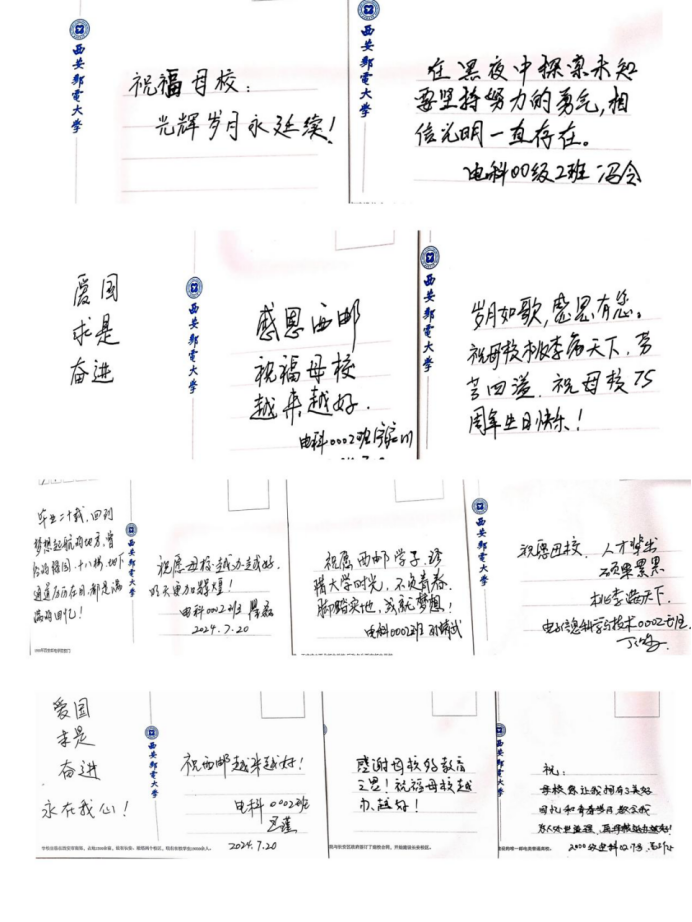 西安邮电大学
祝福母校：
光辉岁月永延续！
在黑夜中探索未知
要坚持努力的勇气，相
信光明一直存在。
电科00级2班 冯令
爱国
求是
奋进
西安邮电大学
感恩西邮
祝福母校
越来越好．
电科0002班
西安邮电大学
岁月如歌，感恩有您。
祝母校桃李满天下，芳
芳四溢．祝母校75
周年生日快乐！
毕业二十载，回到
梦想起航的地方，曾
的操园、十八楼、地下
通道历历在目，都是满
满的回忆！
西安邮电大学
祝愿母校越办越好，
明天更加辉煌！
电科0002班
2024.7.20
祝愿西邮学子，珍
惜大学时光，不负青春，
脚踏实地，成就梦想！
电科0002班
西安邮电大学
祝愿母校．人才辈出
硕果累累
桃李满天下．
电子信息科学与技术0002班
爱国
求是
奋进
永在我心！
西安邮电大学
祝西邮越来越好！
电科0002班
2024.7.20
感谢母校的教育
之恩！祝福母校越
办越好！
西安邮电大学
祝：
母校您让我拥有了美好
回忆和青春岁月，教会我